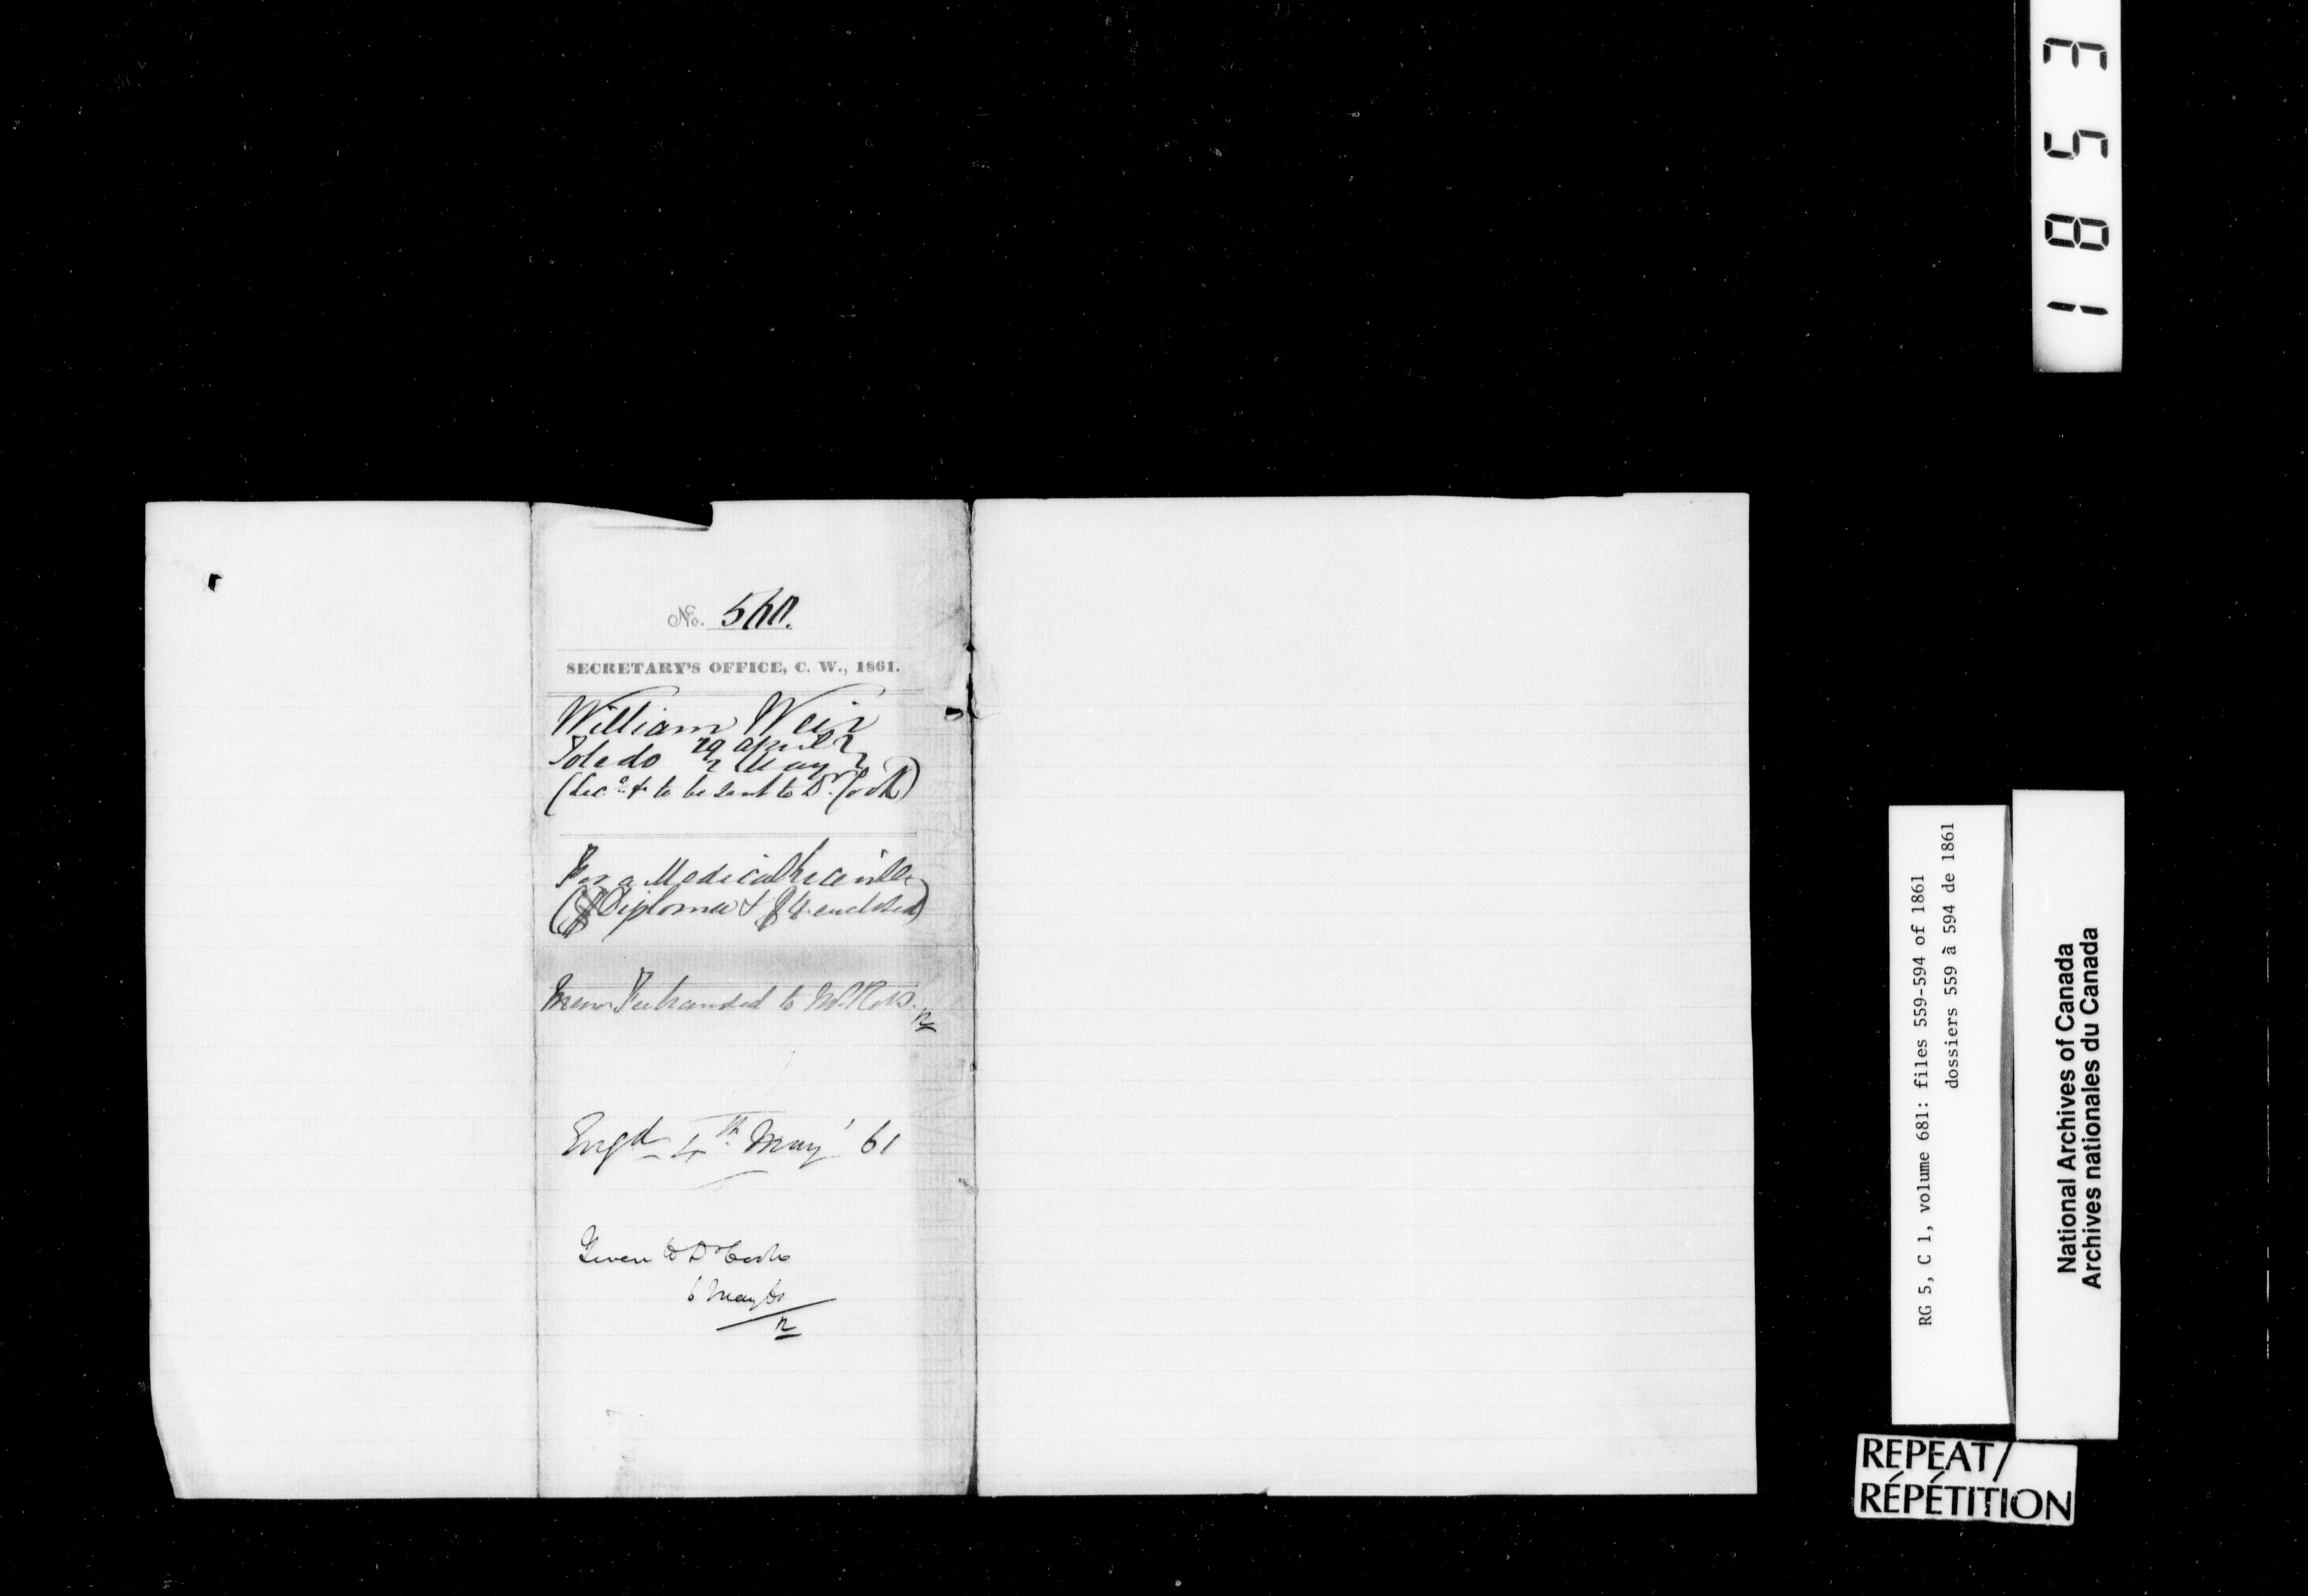 1853
No. 560.
SECRETARY'S OFFICE, C. W., 1861.
William Weir
Toledo 29 April
2 May
(Lice & to be sent to Dr. Cook)
For a Medical License
(Diploma & $4 enclosed)
Memo Fee handed to Mr Ross.
Engd 4th May '61
Given to Dr Cook
6 May 61
RG 5, C 1, volume 681: files 559-594 of 1861
dossiers 559 à 594 de 1861
National Archives of Canada
Archives nationales du Canada
REPEAT/
RÉPÉTITION